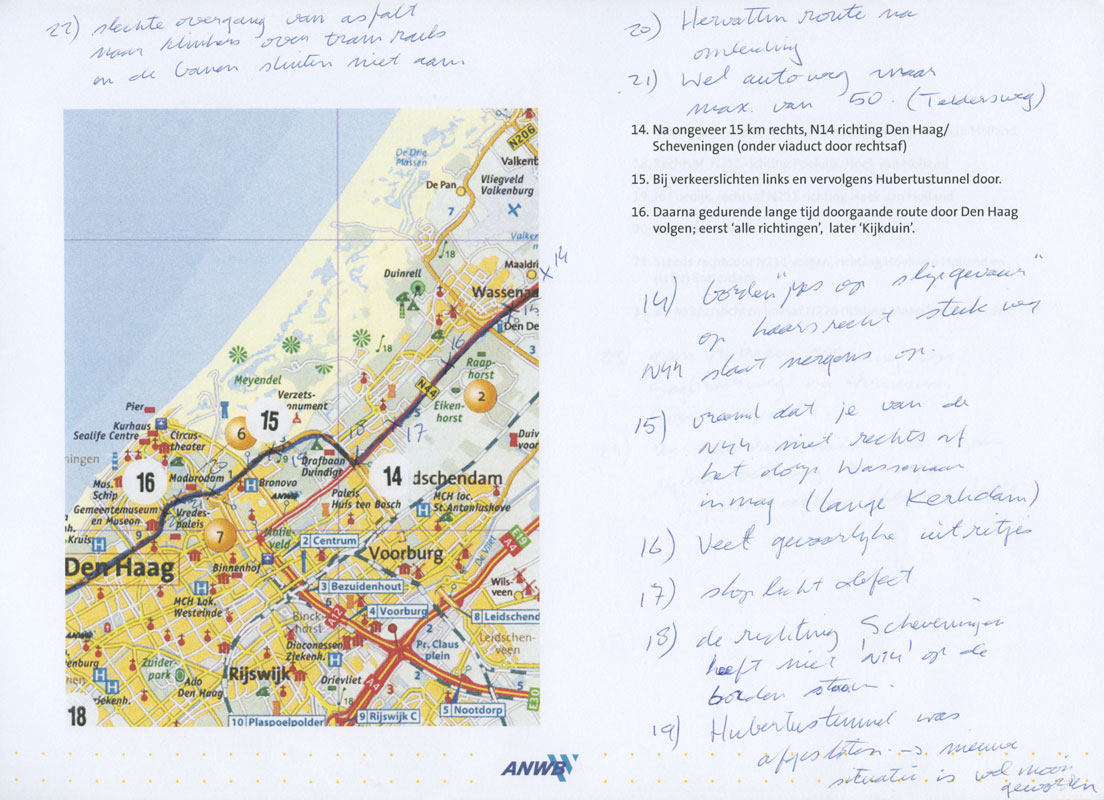 22) slechte overgang van asfalt
naar klinkers over tramrails
en de banen sluiten niet aan.
20) Hervatten route na
omleiding
21) Wel autoweg maar
max. van 50. (Teldersweg)
14. Na ongeveer 15 km rechts, N14 richting Den Haag/
Scheveningen (onder viaduct door rechtsaf)
15. Bij verkeerslichten links en vervolgens Hubertustunnel door.
16. Daarna gedurende lange tijd doorgaande route door Den Haag
volgen; eerst ‘alle richtingen’, later ‘Kijkduin’.
14) bordenjes op "slipgevaar"
op haarsrecht stuk weg
N44 slaat nergens op.
15) vreemd dat je van de
N44 niet rechts af
het dorp Wassenaar
in mag (lange Kerkdam)
16) Veel gevaarlijke uitritjes
17) stoplicht defect
18) de richting Scheveningen
heeft niet 'N14' op de
borden staan.
19) Hubertustunnel was
afgesloten → nieuwe
situatie is wel mooi
geworden
N206
De Drie
Plassen
Valkent
De Pan
Vliegveld
Valkenburg
7
Valken
18
Maaldri
X14
Duinrell
Wassena
15
Den De
16
3
18
Raap-
horst
Meyendel
N44
Eiken-
horst
2
Verzets-
monument
5
Pier
15
17
Kurhaus
Sealife Centre
Circus-
theater
6
18
Duiv
voor
ningen
19
Drafbaan
Duindigt
14
idschendam
16
Madurodam
Bronovo
Mus.
Schip
ANWB
Paleis
Huis ten Bosch
MCH loc.
St.Antoniushove
Gemeentemuseum
en Museon
Vredes-
paleis
9
7
Malie-
veld
E19
h.
Kruis
2 Centrum
A4
De Vliet
Voorburg
Den Haag
Binnenhof
3 Bezuidenhout
Wils-
veen
MCH Lok.
Westeinde
6
4 Voorburg
8 Leidschend
A12
Binck-
horst
2
Leidschen-
veen
Diaconessen
Ziekenh.
Pr. Claus
plein
enburg
Zuider-
park
Rijswijk
Ado
Den Haag
Drievliet
A4
3
2
5
ekenh.
5 Nootdorp
18
10 Plaspoelpolder
9 Rijswijk C
ANWB